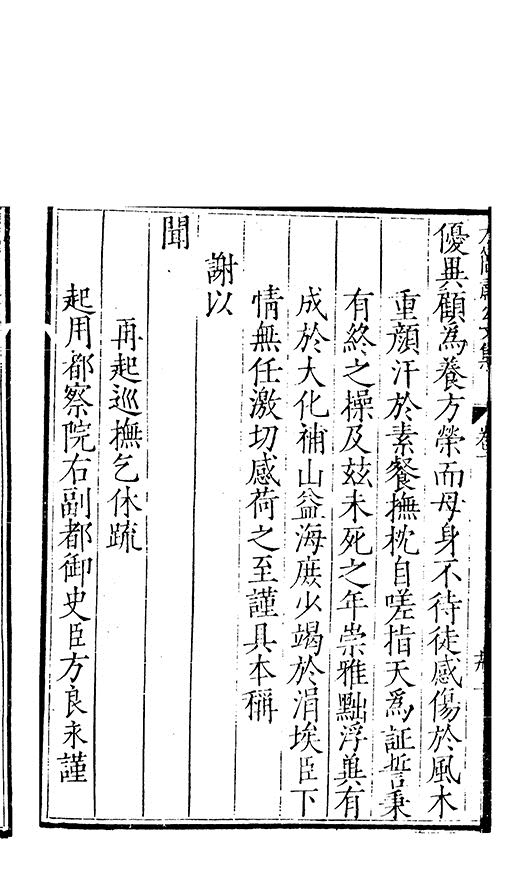 優異顧為養方榮而母身不待徒感傷於風木
重顔汗於素餐撫枕自嗟指天為証誓秉
有終之操及玆未死之年崇雅黜浮兾有
成於大化補山益海庶少竭於涓埃臣下
情無任激切感荷之至謹具本稱
謝以
聞
再起巡撫乞休疏
起用都察院右副都御史臣方良永謹